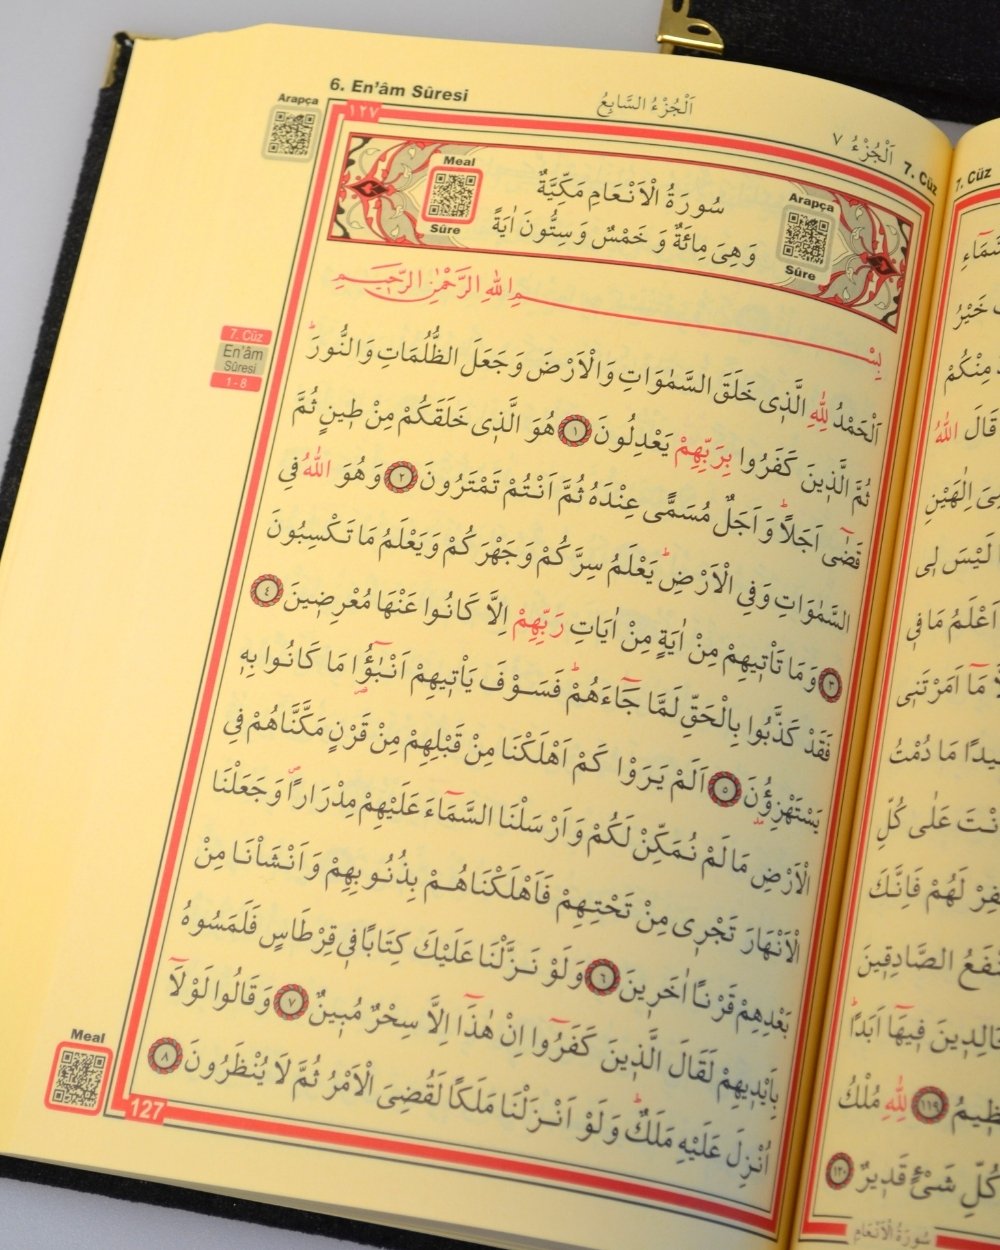 6. En'âm Sûresi
اَلْجُزْءُ السَّابِعُ
اَلْجُزْءُ ٧
7. Cüz
Arapça
١٢٧
Meal
Sûre
سُورَةُ الْاَنْعَامِ مَكِّيَّةٌ
وَهِىَ مِائَةٌ وَ خَمْسٌ وَ سِتُّونَ اٰيَةً
Arapça
Sûre
بِسْمِ اللّٰهِ الرَّحْمٰنِ الرَّحِيمِ
7. Cüz
En'âm
Sûresi
1 - 8
اَلْحَمْدُ لِلّٰهِ الَّذِى خَلَقَ السَّمٰوَاتِ وَالْاَرْضَ وَجَعَلَ الظُّلُمَاتِ وَالنُّورَ
ثُمَّ الَّذِينَ كَفَرُوا بِرَبِّهِمْ يَعْدِلُونَ ١ هُوَ الَّذِى خَلَقَكُمْ مِنْ طِينٍ ثُمَّ
قَضٰٓى اَجَلًا وَ اَجَلٌ مُسَمًّى عِنْدَهُ ثُمَّ اَنْتُمْ تَمْتَرُونَ ٢ وَهُوَ اللّٰهُ فِى
السَّمٰوَاتِ وَفِى الْاَرْضِ يَعْلَمُ سِرَّكُمْ وَجَهْرَكُمْ وَيَعْلَمُ مَا تَكْسِبُونَ
٣ وَمَا تَأْتِيهِمْ مِنْ اٰيَةٍ مِنْ اٰيَاتِ رَبِّهِمْ اِلَّا كَانُوا عَنْهَا مُعْرِضِينَ ٤
فَقَدْ كَذَّبُوا بِالْحَقِّ لَمَّا جَٓاءَهُمْ فَسَوْفَ يَأْتِيهِمْ اَنْبٰٓؤُا مَا كَانُوا بِهِ
يَسْتَهْزِؤُنَ ٥ اَلَمْ يَرَوْا كَمْ اَهْلَكْنَا مِنْ قَبْلِهِمْ مِنْ قَرْنٍ مَكَّنَّاهُمْ فِى
الْاَرْضِ مَا لَمْ نُمَكِّنْ لَكُمْ وَاَرْسَلْنَا السَّمَٓاءَ عَلَيْهِمْ مِدْرَارًا وَجَعَلْنَا
الْاَنْهَارَ تَجْرِى مِنْ تَحْتِهِمْ فَاَهْلَكْنَاهُمْ بِذُنُوبِهِمْ وَاَنْشَاْنَا مِنْ
بَعْدِهِمْ قَرْنًا اٰخَرِينَ ٦ وَلَوْ نَزَّلْنَا عَلَيْكَ كِتَابًا فِى قِرْطَاسٍ فَلَمَسُوهُ
بِاَيْدِيهِمْ لَقَالَ الَّذِينَ كَفَرُٓوا اِنْ هٰذَٓا اِلَّا سِحْرٌ مُبِينٌ ٧ وَقَالُوا لَوْلَٓا
اُنْزِلَ عَلَيْهِ مَلَكٌ وَلَوْ اَنْزَلْنَا مَلَكًا لَقُضِىَ الْاَمْرُ ثُمَّ لَا يُنْظَرُونَ ٨
Meal
127
7. Cüz
خَيْرُ
مِنْكُمْ
قَالَ اللّٰهُ
اِلٰهَيْنِ
لَيْسَ لِى
اَعْلَمُ مَا فِى
مَٓا اَمَرْتَنِى
مَا دُمْتُ
عَلٰى كُلِّ
لَهُمْ فَاِنَّكَ
الصَّادِقِينَ
فِيهَٓا اَبَدًا
١١٩ لِلّٰهِ مُلْكُ
كُلِّ شَىْءٍ قَدِيرٌ ١٢٠
سُورَةُ الْاَنْعَامِ